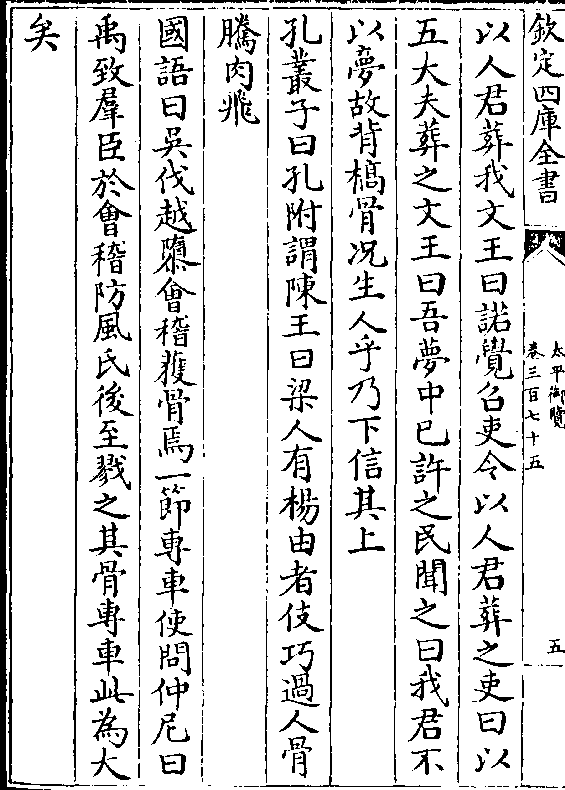 欽定四庫全書
太平御覽
卷三百七十五
五
以人君葬我文王曰諾覺召吏令以人君葬之吏曰以
五大夫葬之文王曰吾夢中已許之民聞之曰我君不
以夢故背槁骨况生人乎乃下信其上
孔叢子曰孔附謂陳王曰梁人有楊由者伎巧過人骨
騰肉飛
國語曰吳伐越隳會稽獲骨焉一節專車使問仲尼曰
禹致羣臣於會稽防風氏後至戮之其骨專車此為大
矣